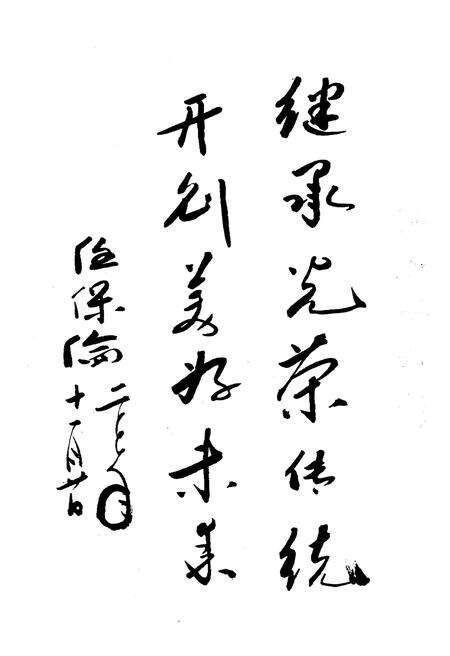 继承光荣传统
开创美好未来
任保倫
十一月廿日